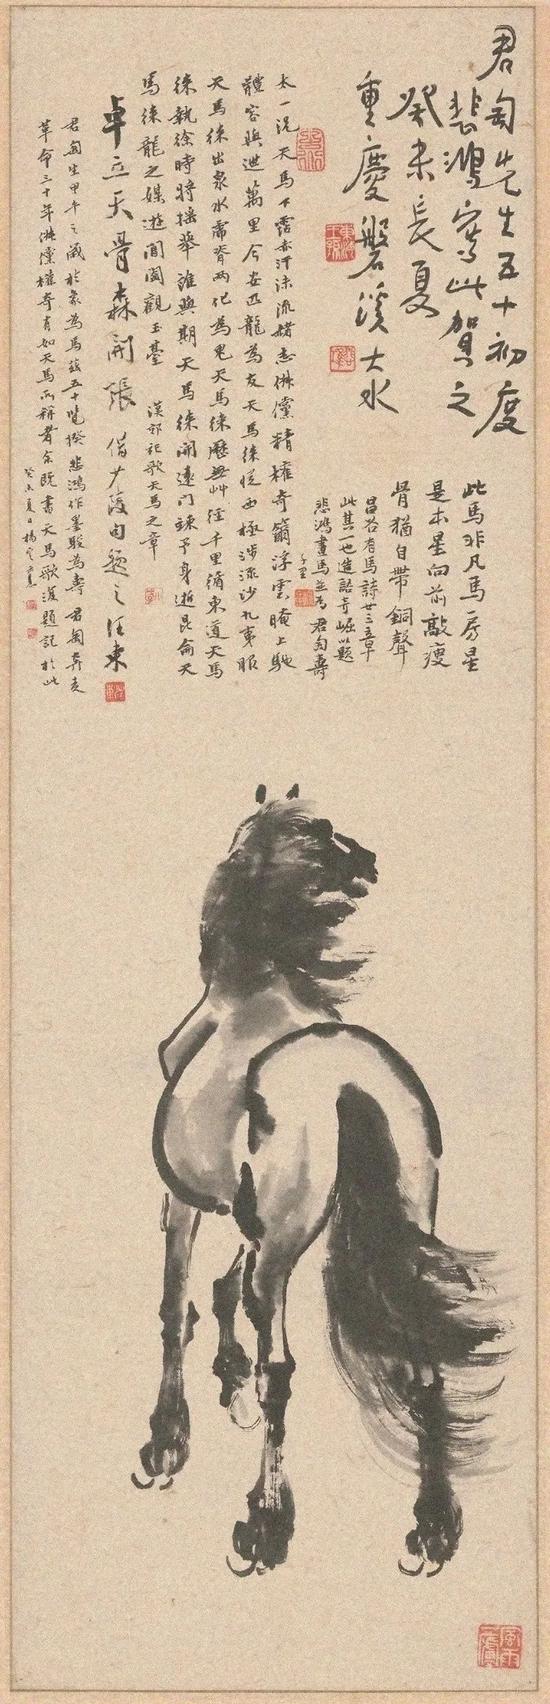 君匋先生五十初度
悲鴻寫此賀之
癸未長夏
重慶磐溪大水
此馬非凡馬房星
是本星向前敲瘦
骨猶自帶銅聲
昌谷有馬詩廿三章
此其一也進語奇崛以題
悲鴻畫馬並為君匋壽
太一況天馬下霑赤汗沫流赭志俶儻精權奇籋浮雲晻上馳
體容與迣萬里今安匹龍為友天馬徠從西極涉流沙九夷服
天馬徠出泉水虎脊兩化若鬼天馬徠歷無艸徑千里循東道天馬
徠執徐時將搖舉誰與期天馬徠開遠門竦予身逝昆侖天
馬徠龍之媒遊閶闔觀玉臺 漢郊祀歌天馬之章
卓立天骨森開張 借少陵句題之 汪東
君匋生甲午之歲於象為馬茲五十覽揆悲鴻作墨駿為壽君匋奔走
革命三十年俶儻權奇有如天馬 既書天馬歌復題記於此
癸未夏日